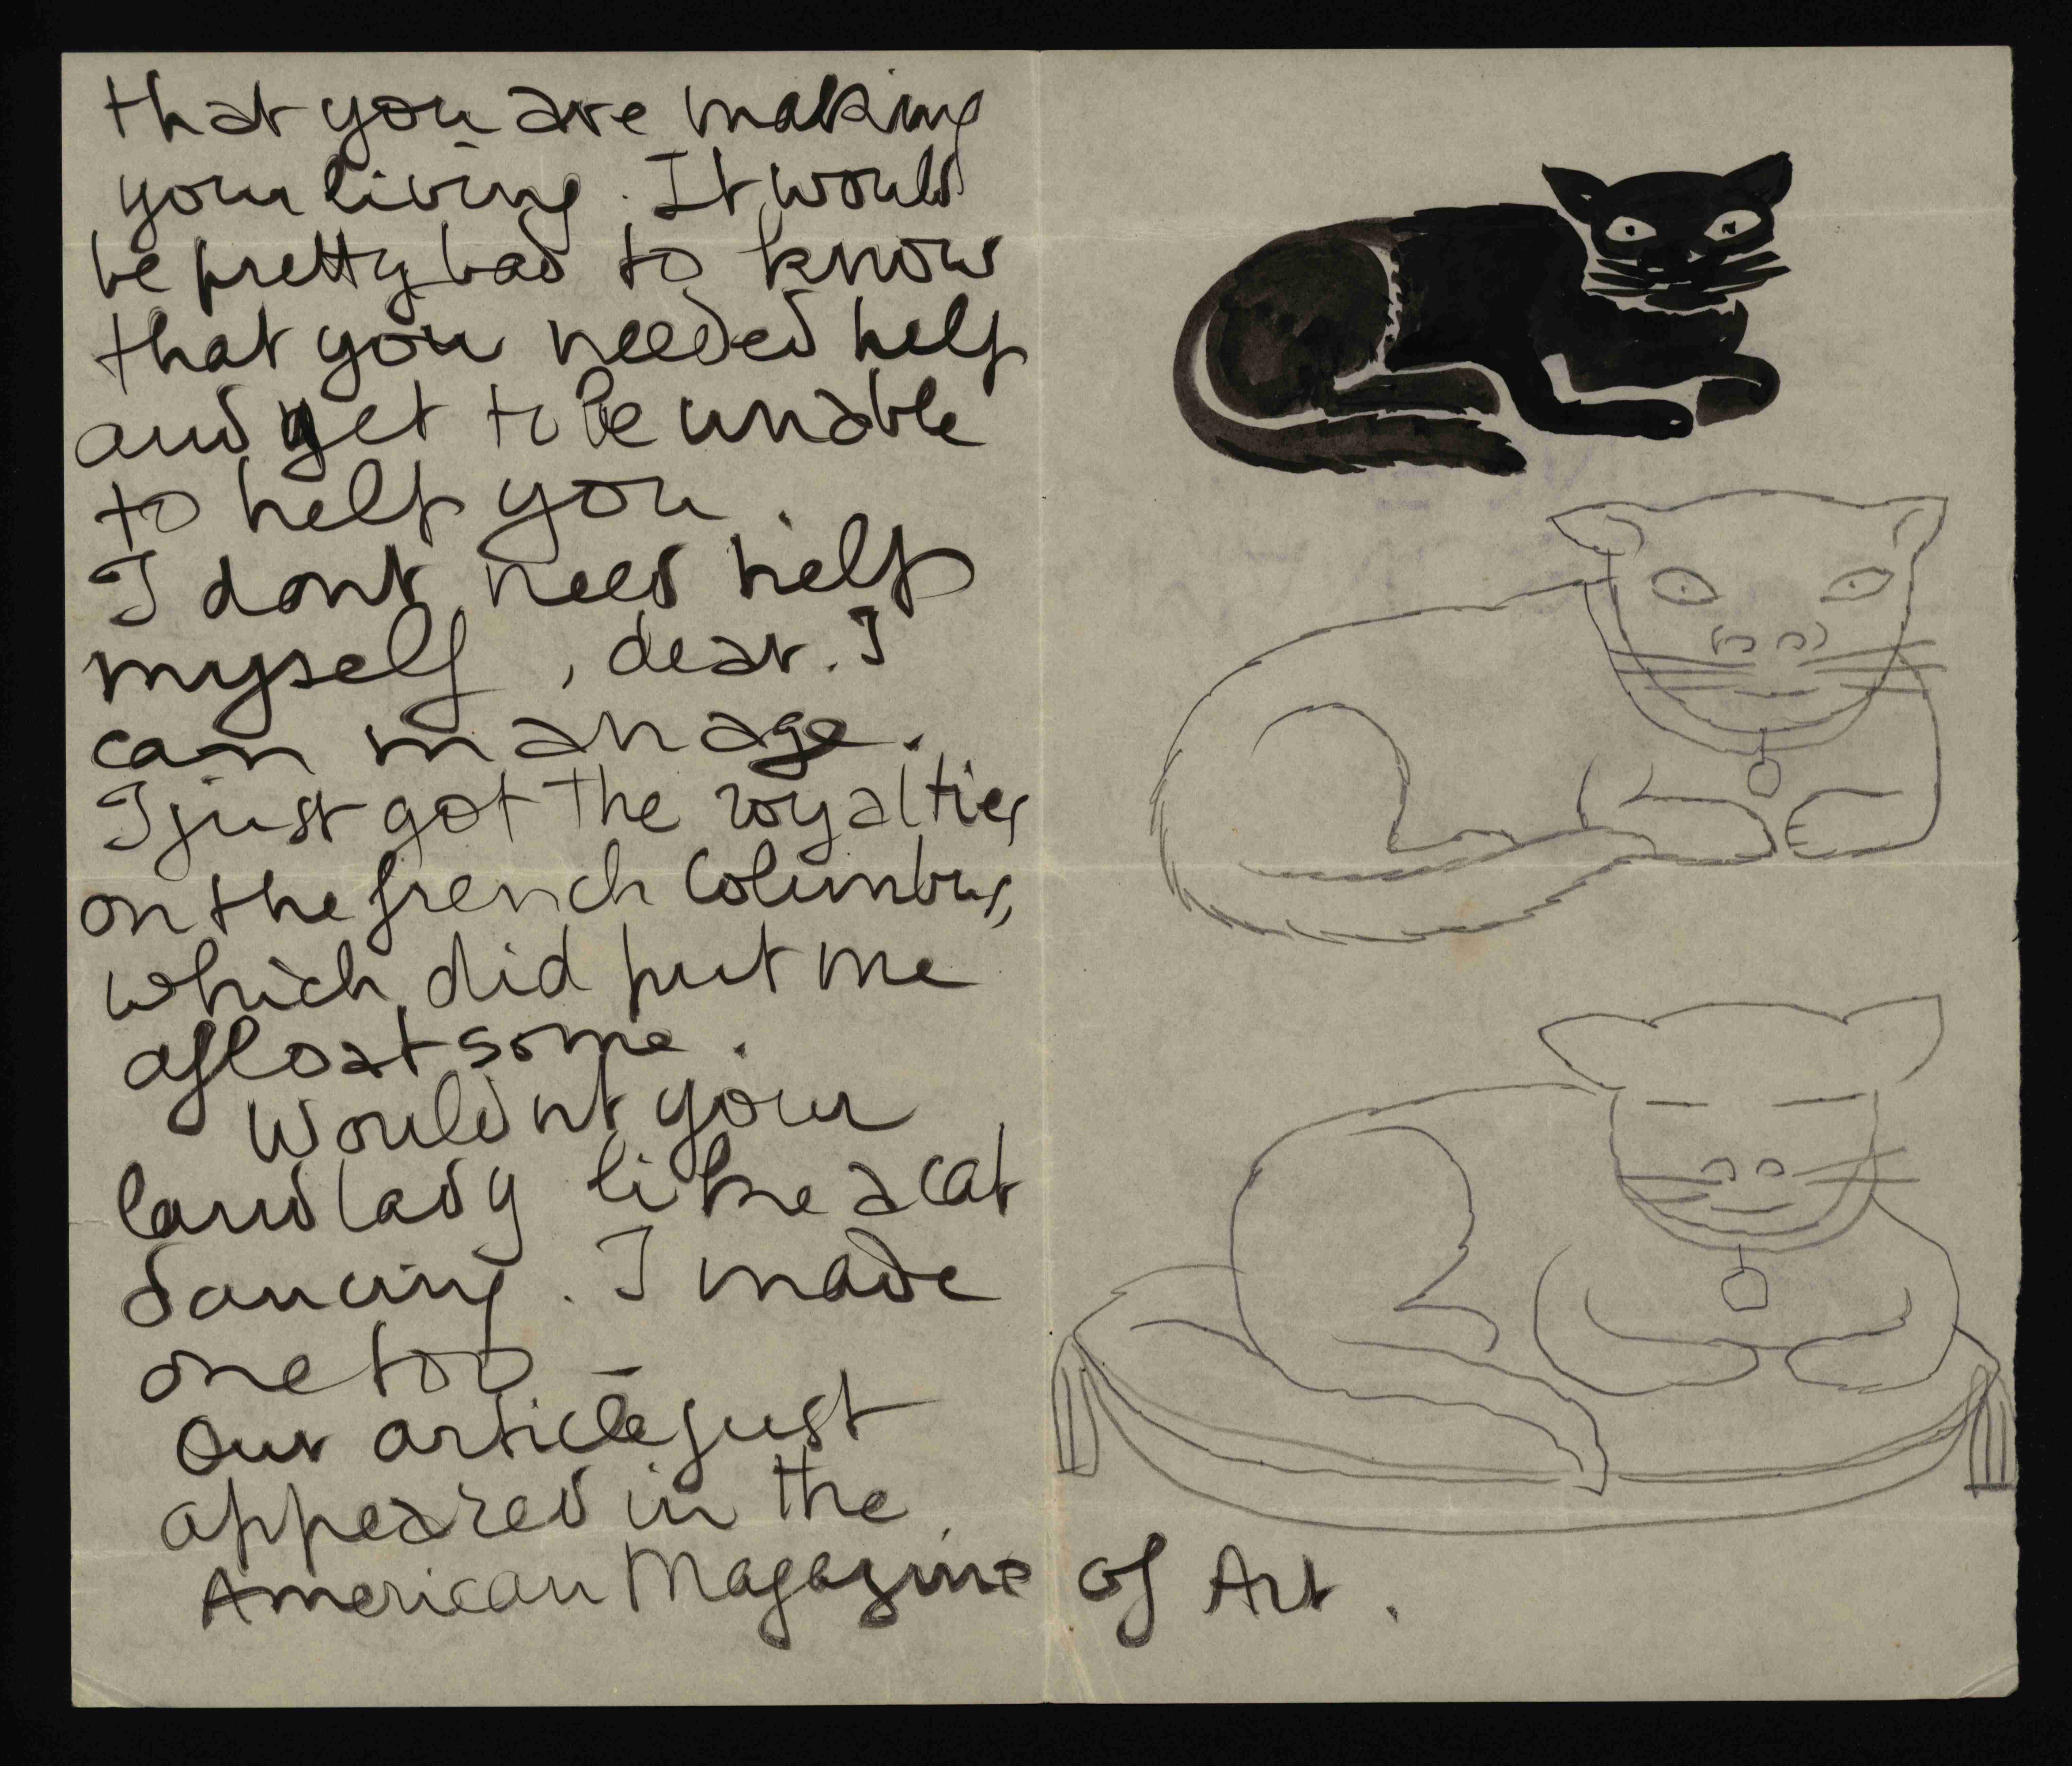 that you are making
your living. It would
be pretty bad to know
that you needed help
and yet to be unable
to help you.
I dont need help
myself, dear. I
can manage.
I just got the royalties
on the french Columbus,
which did put me
afloat some.
Wouldnt your
landlady like a cat
dancing. I made
one too –
Our article just
appeared in the
American Magazine of Art.